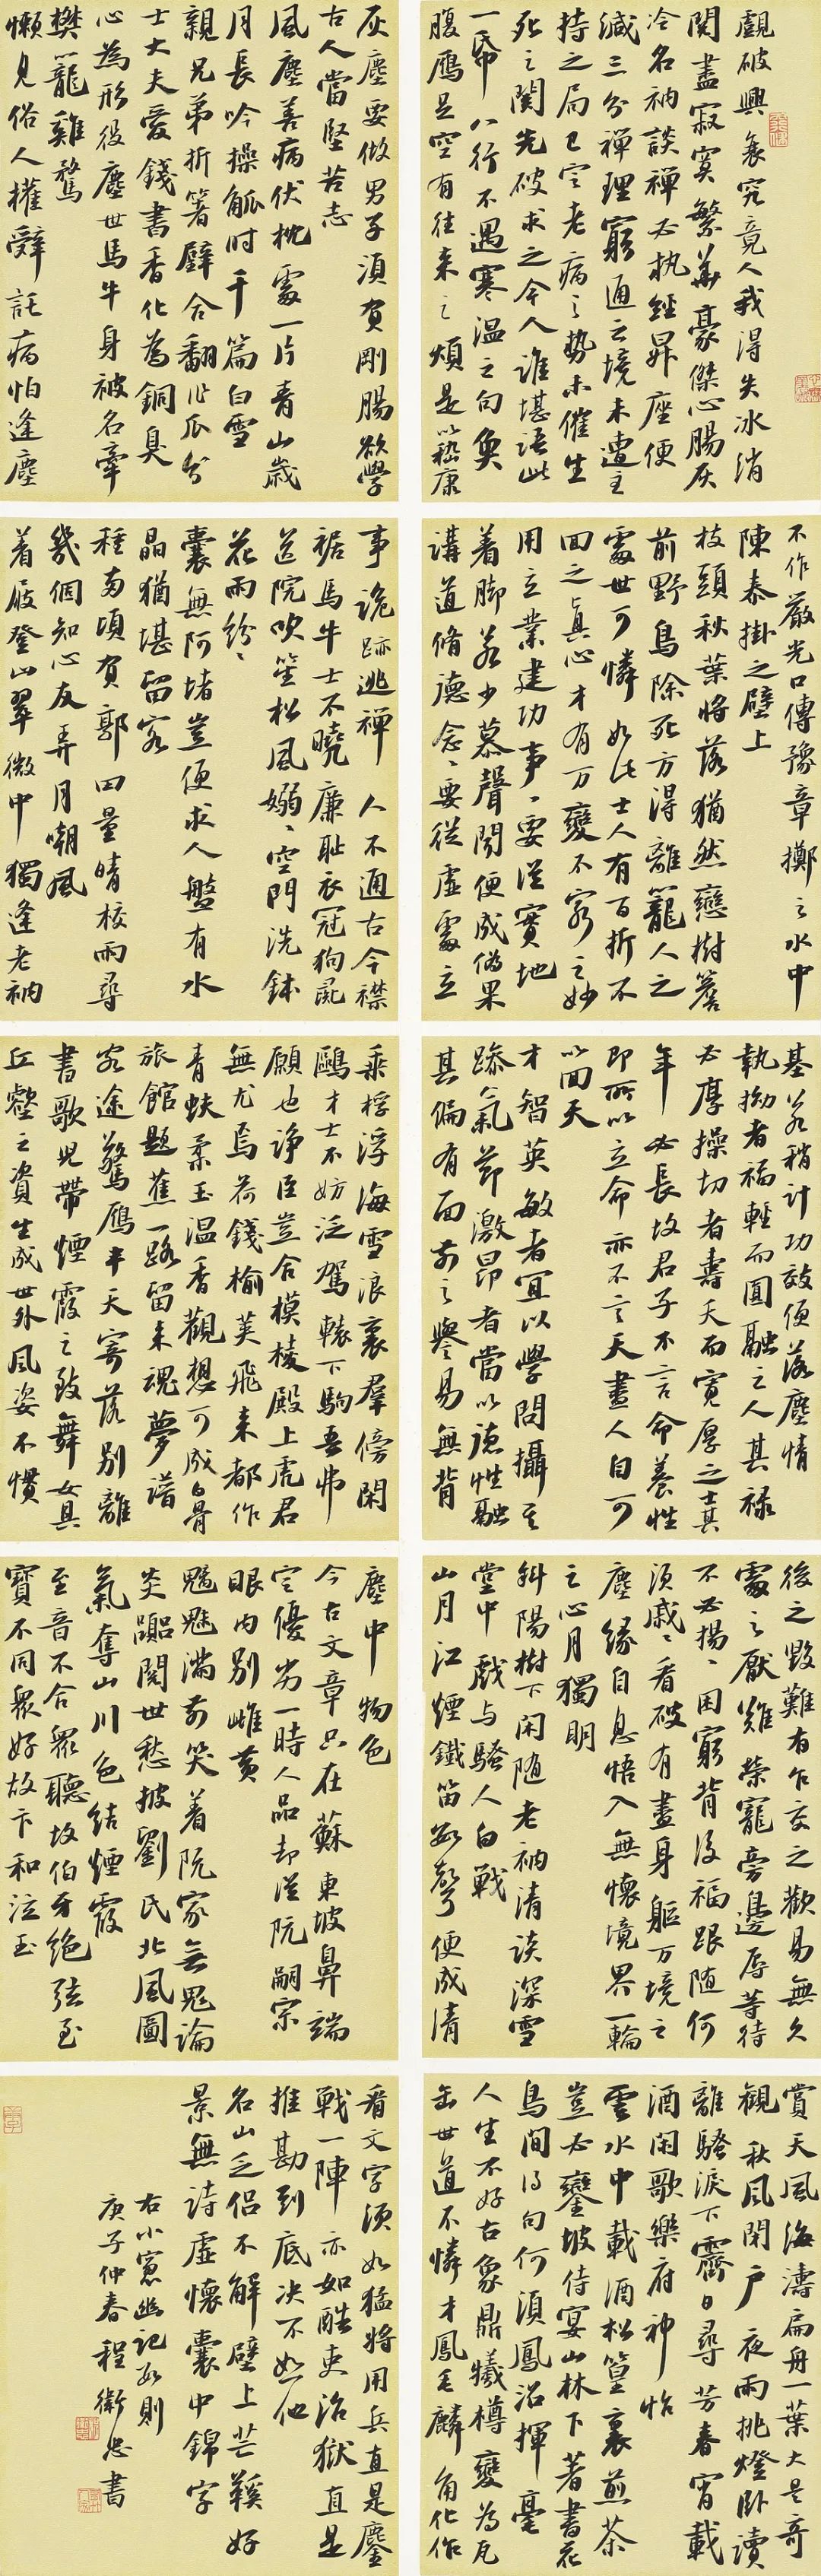 覷破興衰究竟人我得失冰消
閱盡寂寞繁華豪傑心腸灰
冷名衲談禪必執經昇座便
減三分禪理窮通之境未遭主
持之局已定老病之勢未催生
死之關先破求之今人誰堪語此
一帋八行不遇寒溫之句魚
腹雁足空有往來之煩是以嵇康
不作嚴光口傳豫章擲之水中
陳泰掛之壁上
枝頭秋葉將落猶然戀樹簷
前野鳥除死方得離籠人之
處世可憐如此士人有百折不
回之真心才有万變不窮之妙
用立業建功事〻要從實地
着脚若少慕聲聞便成偽果
講道脩德念〻要從虛處立
基若稍計功效便落塵情
執拗者福輕而圓融之人其祿
必厚操切者壽夭而寬厚之士其
年必長故君子不言命養性
即所以立命亦不言天盡人自可
以回天
才智英敏者宜以學問攝其
躁氣節激昂者當以德性融
其偏有面前之譽易無背
後之毀難有乍交之歡易無久
處之厭難榮寵旁邊辱等待
不必揚〻困窮背後福跟隨何
須戚〻看破有盡身軀万境之
塵緣自息悟入無懷境界一輪
之心月獨明
斜陽樹下閑隨老衲清談深雪
堂中戲与騷人白戰
山月江煙鐵笛數聲便成清
賞天風海濤扁舟一葉大是奇
觀秋風閉戶夜雨挑燈卧讀
離騷淚下霽日尋芳春宵載
酒閑歌樂府神怡
雲水中載酒松篁裏煎茶
豈必鑾坡侍宴山林下著書花
鳥間得句何須鳳沼揮毫
人生不好古象鼎犧樽變為瓦
缶世道不憐才鳳毛麟角化作
灰塵要做男子須負剛腸欲學
古人當堅苦志
風塵善病伏枕處一片青山歲
月長吟操觚時千篇白雪
親兄弟折箸璧合翻作瓜分
士大夫愛錢書香化為銅臭
心為形役塵世馬牛身被名牽
樊籠雞鶩
懶見俗人權辭託病怕逢塵
事詭跡逃禪 人不通古今襟
裾馬牛士不曉廉恥衣冠狗彘
道院吹笙松風嫋〻空門洗鉢
花雨紛〻
囊無阿堵豈便求人盤有水
晶猶堪留客
種兩頃負郭田量晴校雨尋
幾個知心友弄月嘲風
着屐登山翠微中獨逢老衲
乘桴浮海雪浪裏羣傍閑
鷗才士不妨泛駕轅下駒吾弗
願也諍臣豈合模棱殿上虎君
無尤焉荷錢榆莢飛來都作
青蚨柔玉溫香觀想可成白骨
旅館題蕉一路留來魂夢譜
客途驚雁半天寄落別離
書歌兒帶煙霞之致舞女具
丘壑之資生成世外風姿不慣
塵中物色
今古文章只在蘇東坡鼻端
定優劣一時人品却從阮嗣宗
眼內別雌黃
魑魅滿前笑着阮家無鬼論
炎囂閱世愁披劉氏北風圖
氣奪山川色結煙霞
至音不合眾聽故伯牙絕弦至
寶不同眾好故卞和泣玉
看文字須如猛將用兵直是鏖
戰一陣亦如酷吏治獄直是
推勘到底決不恕他
名山乏侶不解壁上芒鞋好
景無詩虛懷囊中錦字
右小窗幽記數則
庚子仲春程衛忠書